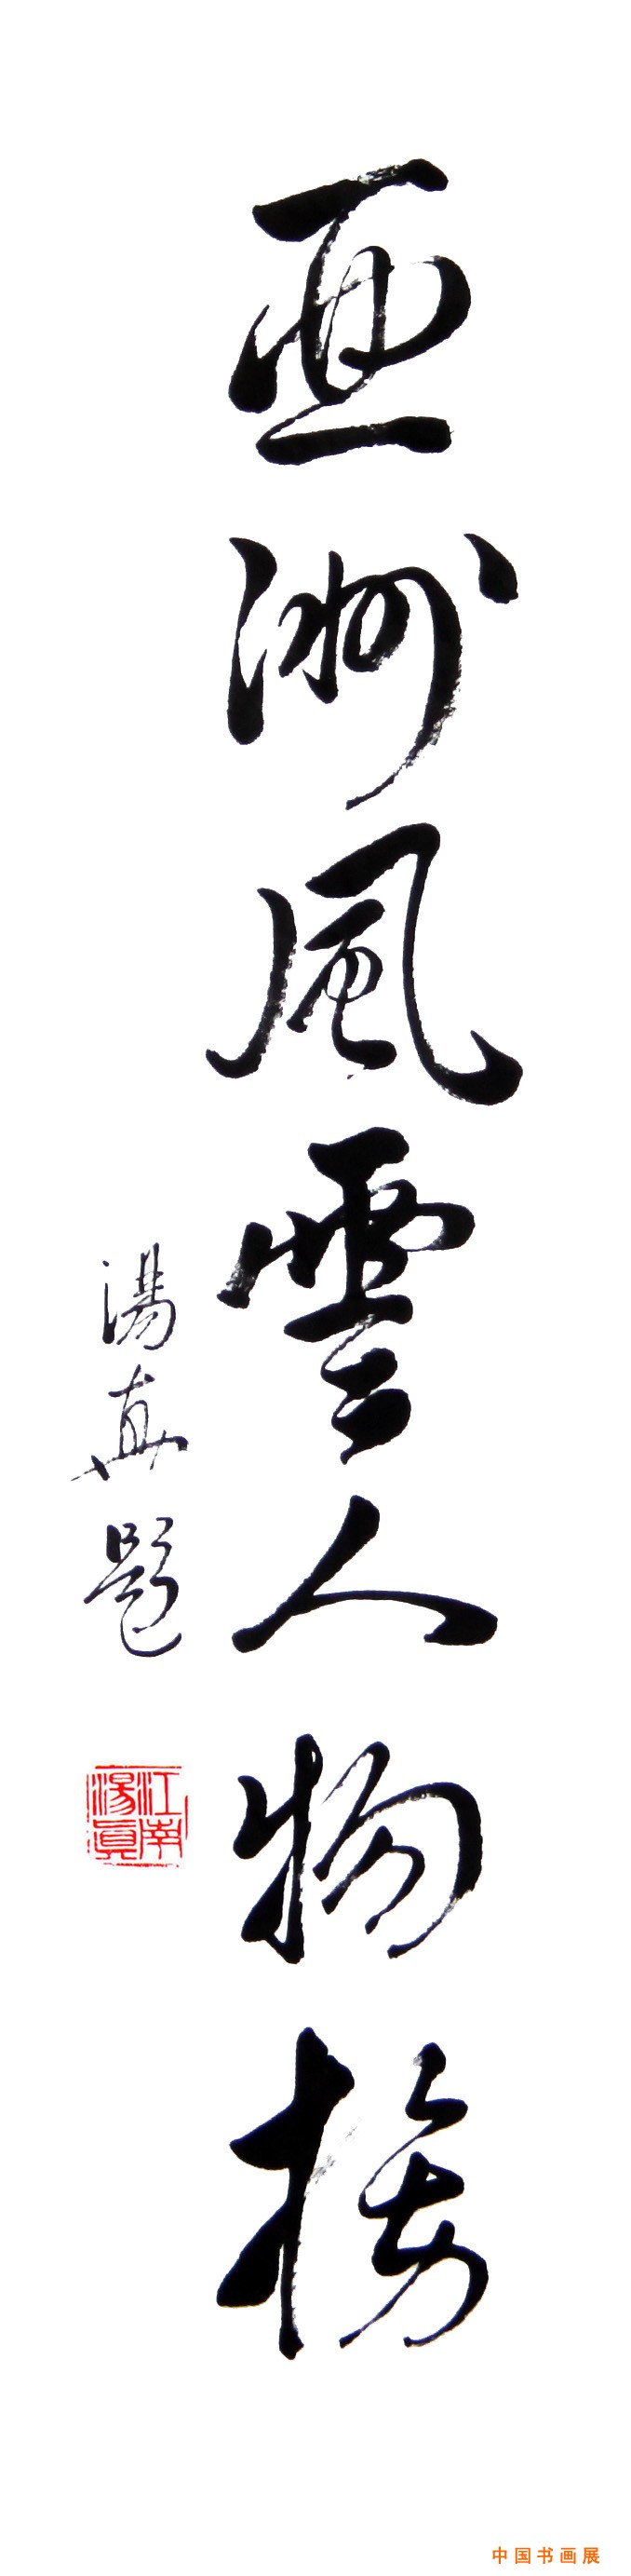 亞洲風雲人物榜
湯真題
江南湯真
中国书画展